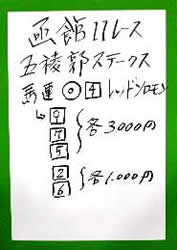 函館11レース
五稜郭ステークス
馬連 ◎ 4 レッドソロモン
↳ 9
7
5 } 各3000円
2
6 } 各1.000円